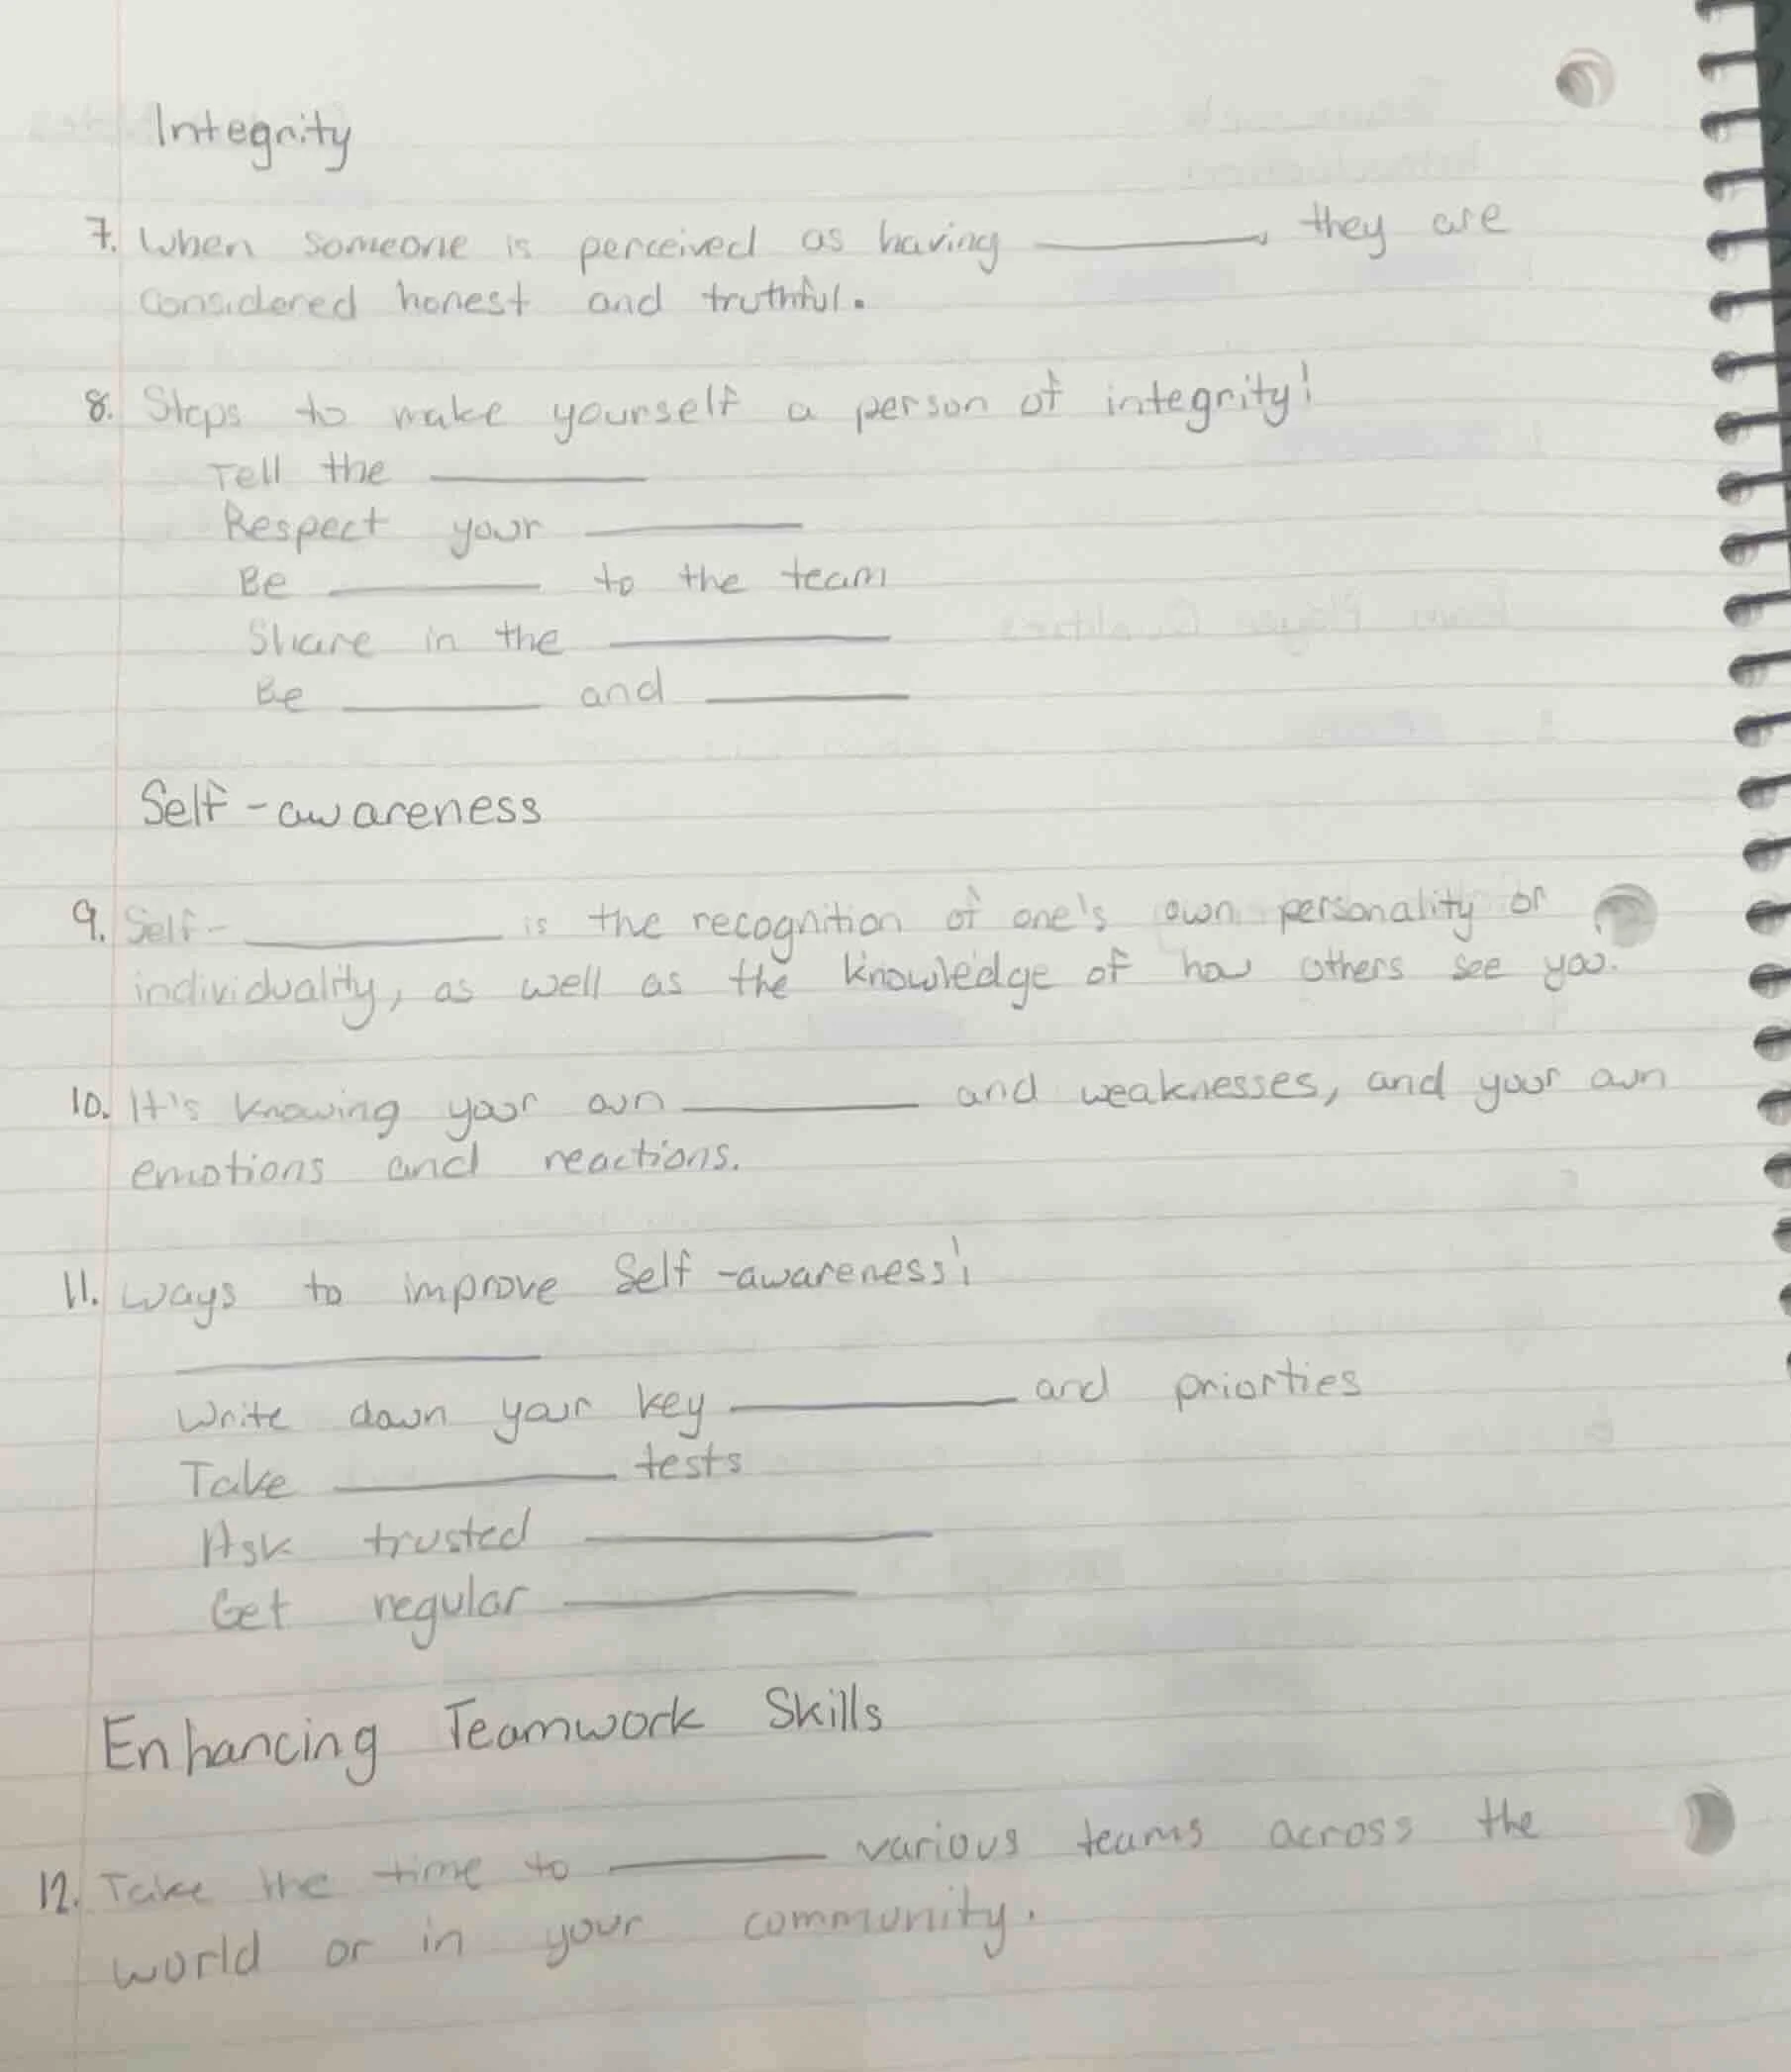 Integrity
7. When someone is perceived as having ________, they are
considered honest and truthful.
8. Steps to make yourself a person of integrity!
Tell the ________
Respect your ________
Be ________ to the team
Share in the ________
Be ________ and ________
Self-awareness
9. Self-________ is the recognition of one's own personality or
individuality, as well as the knowledge of how others see you.
10. It's knowing your own ________ and weaknesses, and your own
emotions and reactions.
11. Ways to improve Self-awareness!
________
Write down your key ________ and priorties
Take ________ tests
Ask trusted ________
Get regular ________
Enhancing Teamwork Skills
12. Take the time to ________ various teams across the
world or in your community.